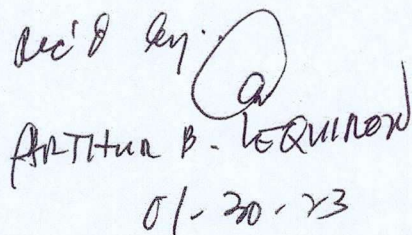 Rec'd by:
ARTHUR B. LEQUIRON
01-30-23